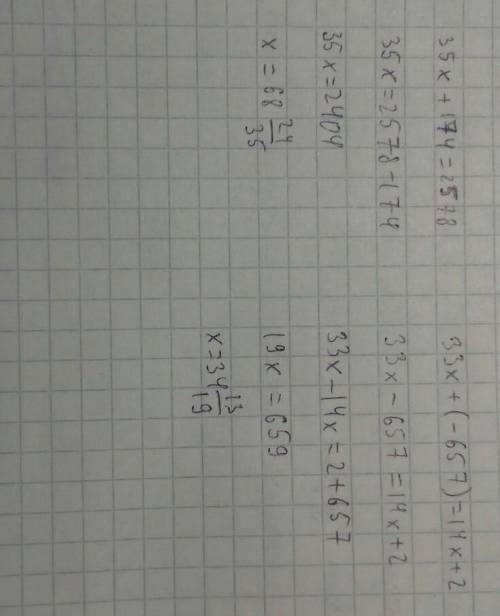 35x + 174 = 2578
35x = 2578 - 174
35x = 2404
x = 68 24/35
33x + (-657) = 14x + 2
33x - 657 = 14x + 2
33x - 14x = 2 + 657
19x = 659
x = 34 13/19